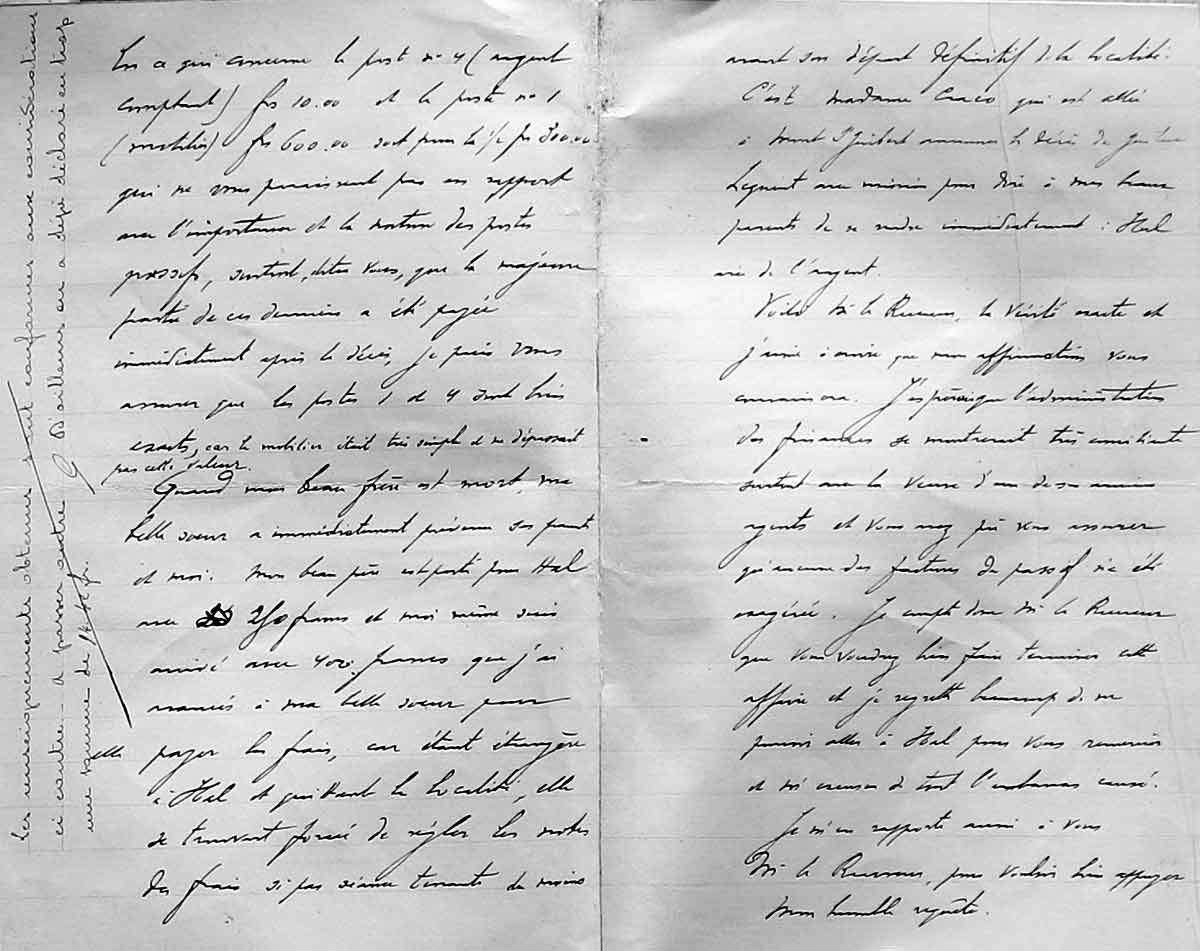 En ce qui concerne le post n° 4 (argent
comptant) frs 10.00 et le poste n° 1
(mobilier) frs 600.00 soit pour la 1/2 frs 300.00
qui ne vous paraissent pas en rapport
avec l'importance et la nature des postes
passifs, surtout, dites vous, que la majeure
partie de ces derniers a été payée
immédiatement après le décès, je puis vous
assurer que les postes 1 et 4 sont bien
exacts, car le mobilier était très simple et ne dépassait
pas cette valeur.
Quand mon beau frère est mort, ma
belle soeur a immédiatement prévenu ses parents
et moi. Mon beau père est parti pour Hal
avec 250 francs et moi même suis
arrivé avec 400 francs que j'ai
avancés à ma belle soeur pour
payer les frais, car étant étrangère
à Hal et quittant la localité, elle
se trouvait forcée de régler les notes
des frais si pas séance tenante du moins
avant son départ définitif de la localité.
C'est madame Craco qui est allée
à Mont St Guibert annoncer le décès de
avec mission pour dire à mes beaux
parents de se rendre immédiatement à Hal
avec de l'argent.
Voilà Mr le Receveur, la vérité exacte et
j'aime à croire que mon affirmation vous
convaincra. J'espérais que l'administration
des finances se montrerait très conciliante
surtout avec la veuve d'un de ses anciens
agents et vous vous assurer
qu'aucune des factures du passif n'a été
exagérée. Je compte donc Mr le Receveur
que vous voudrez bien faire terminer cette
affaire et je regrette beaucoup de ne
pouvoir aller à Hal pour vous remercier
et m'excuser de tout l'embarras causé.
Je m'en rapporte aussi à vous
Mr le Receveur, pour vouloir bien appuyer
mon humble requête.
Les renseignements obtenus sont conformes aux considérations
ci contre. à passer outre D'ailleurs on a déjà déclaré en trop
une somme de